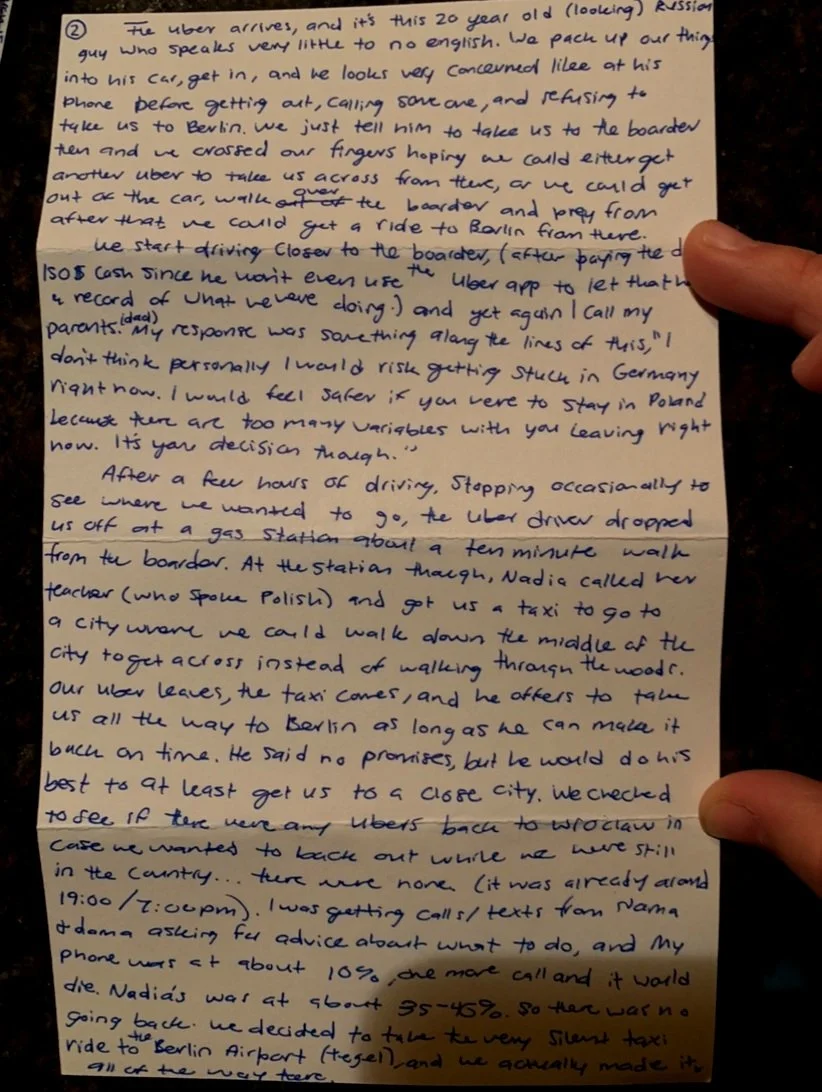 ② The uber arrives, and it's this 20 year old (looking) Russian
guy who speaks very little to no english. We pack up our things
into his car, get in, and he looks very concerned like at his
phone before getting out, calling someone, and refusing to
take us to Berlin. We just tell him to take us to the boarder
then and we crossed our fingers hoping we could either get
another uber to take us across from there, or we could get
out of the car, walk out of over the boarder and prey from
after that we could get a ride to Berlin from there.
We start driving closer to the boarder, (after paying the d
150$ cash since he won't even use the Uber app to let that h
a record of what we were doing.) and yet again I call my
parents. (dad) My response was something along the lines of this, "I
don't think personally I would risk getting stuck in Germany
right now. I would feel safer if you were to stay in Poland
because there are too many variables with you leaving right
now. It's your decision though."
After a few hours of driving, stopping occasionally to
see where we wanted to go, the uber driver dropped
us off at a gas station about a ten minute walk
from the boarder. At the station though, Nadia called her
teacher (who spoke Polish) and got us a taxi to go to
a city where we could walk down the middle of the
city to get across instead of walking through the woods.
Our uber leaves, the taxi comes, and he offers to take
us all the way to Berlin as long as he can make it
back on time. He said no promises, but he would do his
best to at least get us to a close city. We checked
to see if there were any Ubers back to Wroclaw in
case we wanted to back out while we were still
in the country... there were none. (it was already around
19:00/7:00pm). I was getting calls/texts from Nama
+ dama asking for advice about what to do, and my
phone was at about 10%, one more call and it would
die. Nadia's was at about 35-45%. So there was no
going back. We decided to take the very silent taxi
ride to the Berlin Airport (tegel), and we actually made it
all of the way there.